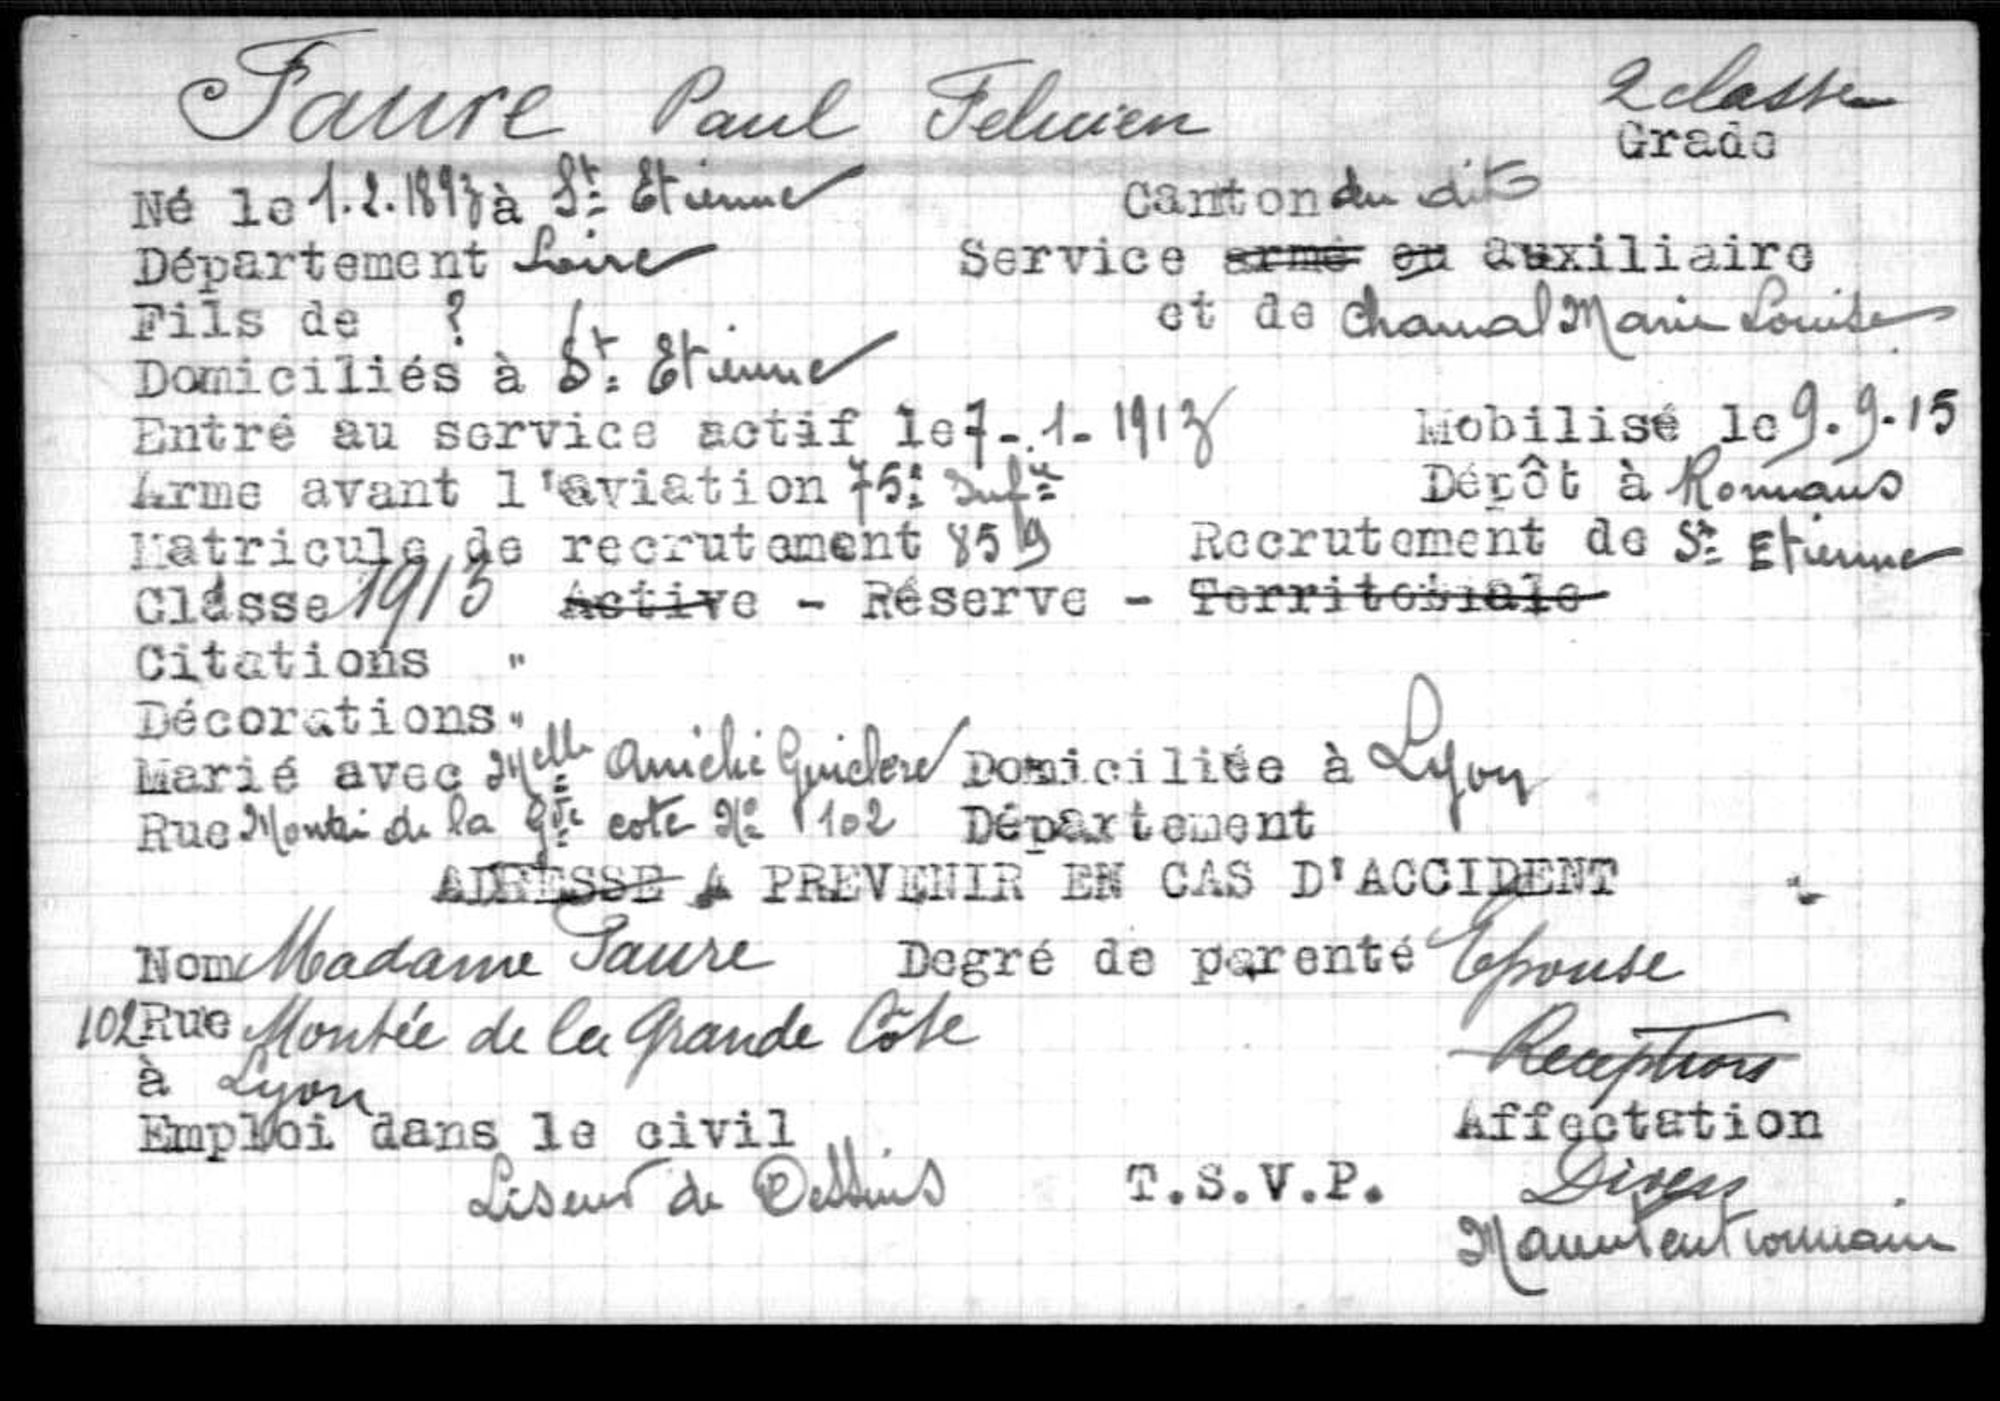 Faure Paul Felicien 2 classe
Grade
Né le 1.2.1893 à St Etienne Canton du dit
Département Loire Service armé ou auxiliaire
Fils de ? et de Marie Louise
Domiciliés à St Etienne
Entré au service actif le 7-1-1913 Mobilisé le 9.9.15
Arme avant l'aviation 75e Infie Dépôt à Romans
Matricule de recrutement 859 Recrutement de St Etienne
Classe 1913 Active - Réserve - Territoriale
Citations "
Décorations "
Marié avec Melle Domiciliée à Lyon
Rue Montée de la Gde cote No 102 Département
ADRESSE A PREVENIR EN CAS D'ACCIDENT
Nom Madame Faure Degré de parenté Epouse
102 Rue Montée de la Grande Côte
à Lyon Reception
Emploi dans le civil Affectation
Liseur de Dessins T.S.V.P. Divers